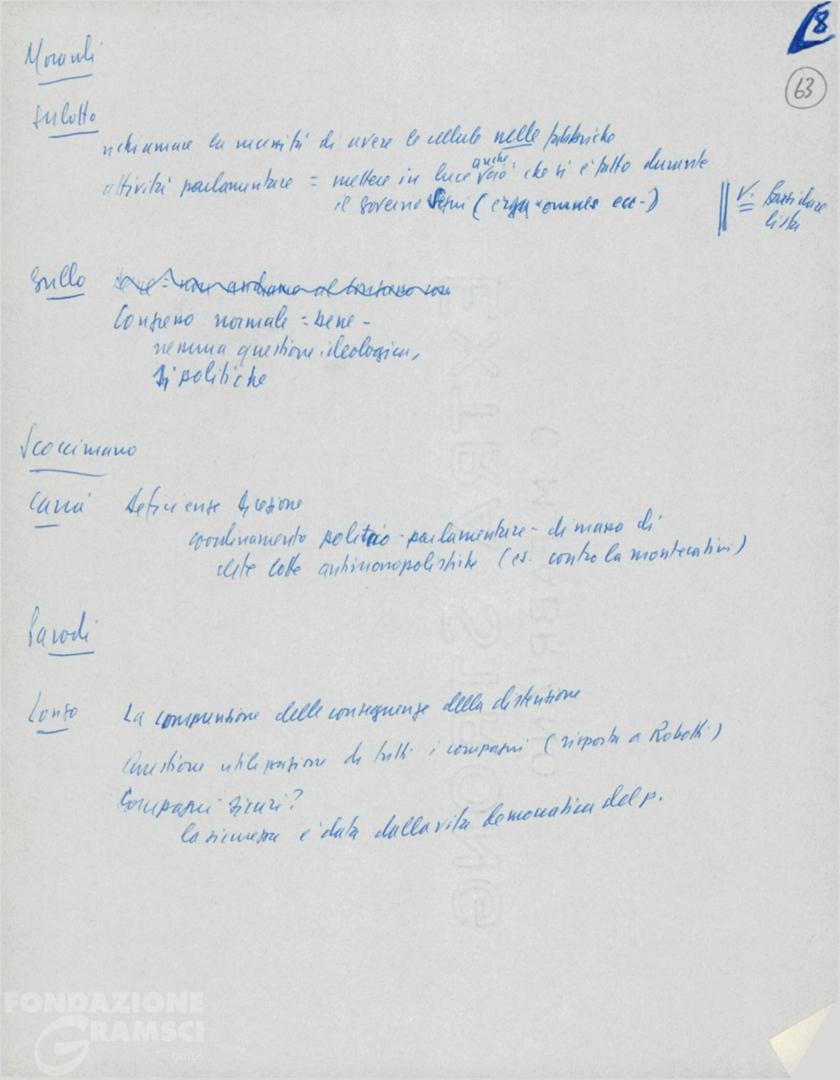 8
63
Morandi
Sulotto
richiamare la necessità di avere le cellule nelle fabbriche
anche
attività parlamentare = mettere in luce ciò che si è fatto durante
il governo Segni (erga omnes ecc.)
V.
liste
Grullo
Congresso normale = bene -
nessuna questione ideologica,
Sì politiche
Scoccimarro
Deficienze Direzione
coordinamento politico - parlamentare - di massa di
date lotte antimonopolistiche (es. contro la montecatini)
Parodi
Longo
La comprensione delle conseguenze della distensione
Questione utilizzazione di tutti i compagni (risposta a Robotti)
Compagni sicuri?
la sicurezza è data dalla vita democratica del p.
EXTRA STRONG
C. M. FABRIANO
FONDAZIONE
GRAMSCI
onlus